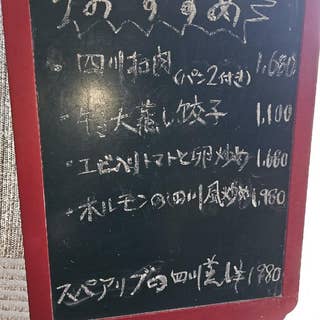 おすすめ
・四川扣肉
(パン2付き) 1,680
・特大蒸し餃子 1,100
・エビ入りトマトと卵炒め 1,680
・ホルモンの四川風炒め 1,980
スペアリブの四川蒸し 1,980